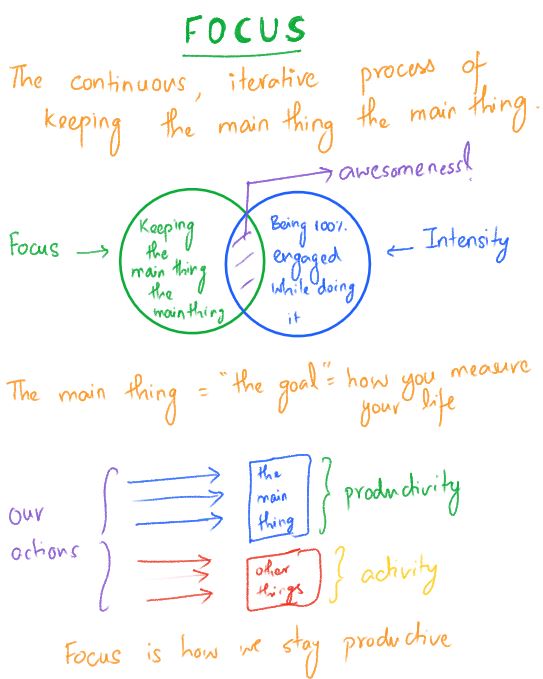 FOCUS
The continuous, iterative process of
keeping the main thing the main thing.
awesomeness!
Focus
Keeping
the
main thing
the
main thing
Being 100%
engaged
while doing
it
Intensity
The main thing = "the goal" = how you measure
your life
our
actions
the
main
thing
productivity
other
things
activity
Focus is how we stay productive